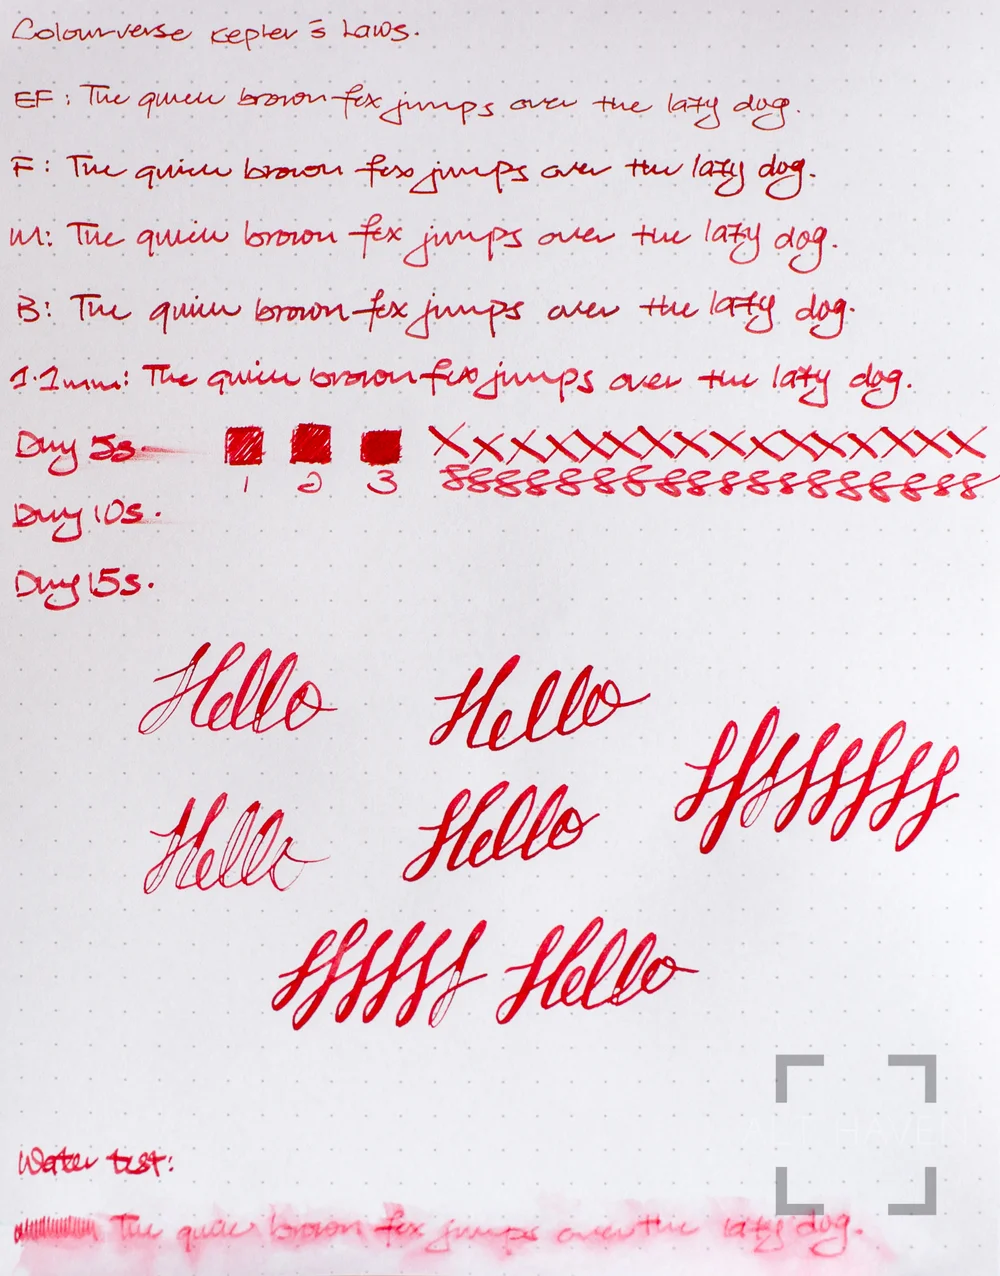 Colourverse Kepler's Laws.
EF: The quick brown fox jumps over the lazy dog.
F: The quick brown fox jumps over the lazy dog.
M: The quick brown fox jumps over the lazy dog.
B: The quick brown fox jumps over the lazy dog.
1.1mm: The quick brown fox jumps over the lazy dog.
Dry 5s.
1 2 3
Dry 10s.
Dry 15s.
Hello Hello
Hello Hello
Hello
HAVEN
Water test:
The quick brown fox jumps over the lazy dog.